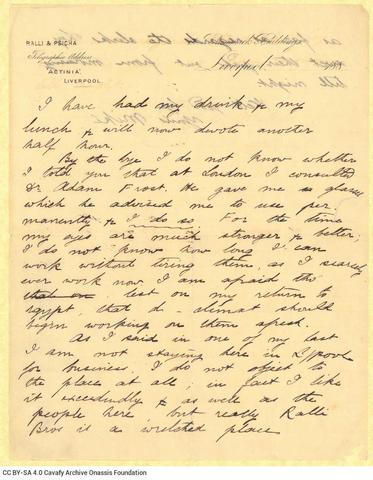 RALLI & PSICHA
Telegraphic Address
"ACTINIA"
LIVERPOOL.
Liverpool 188
I have had my drink & my
lunch & will now devote another
half hour.
By the bye I do not know whether
I told you that at London I consulted
Dr Adam Frost. He gave me so glasses
which he advised me to use per
manently & I do so. For the time
my eyes are much stronger & better;
I do not know how long I can
work without tiring them, as I scarcely
ever work now I am afraid tho
that on lest on my return to
Egypt, that d— climat should
begin working on them afresh.
As I said in one of my last
I am not staying here in L'pool
for business. I do not object to
the place at all; in fact I like
it exceedingly & as well as the
people here, but really Ralli
Bros is a wretched place
CC BY-SA 4.0 Cavafy Archive Onassis Foundation